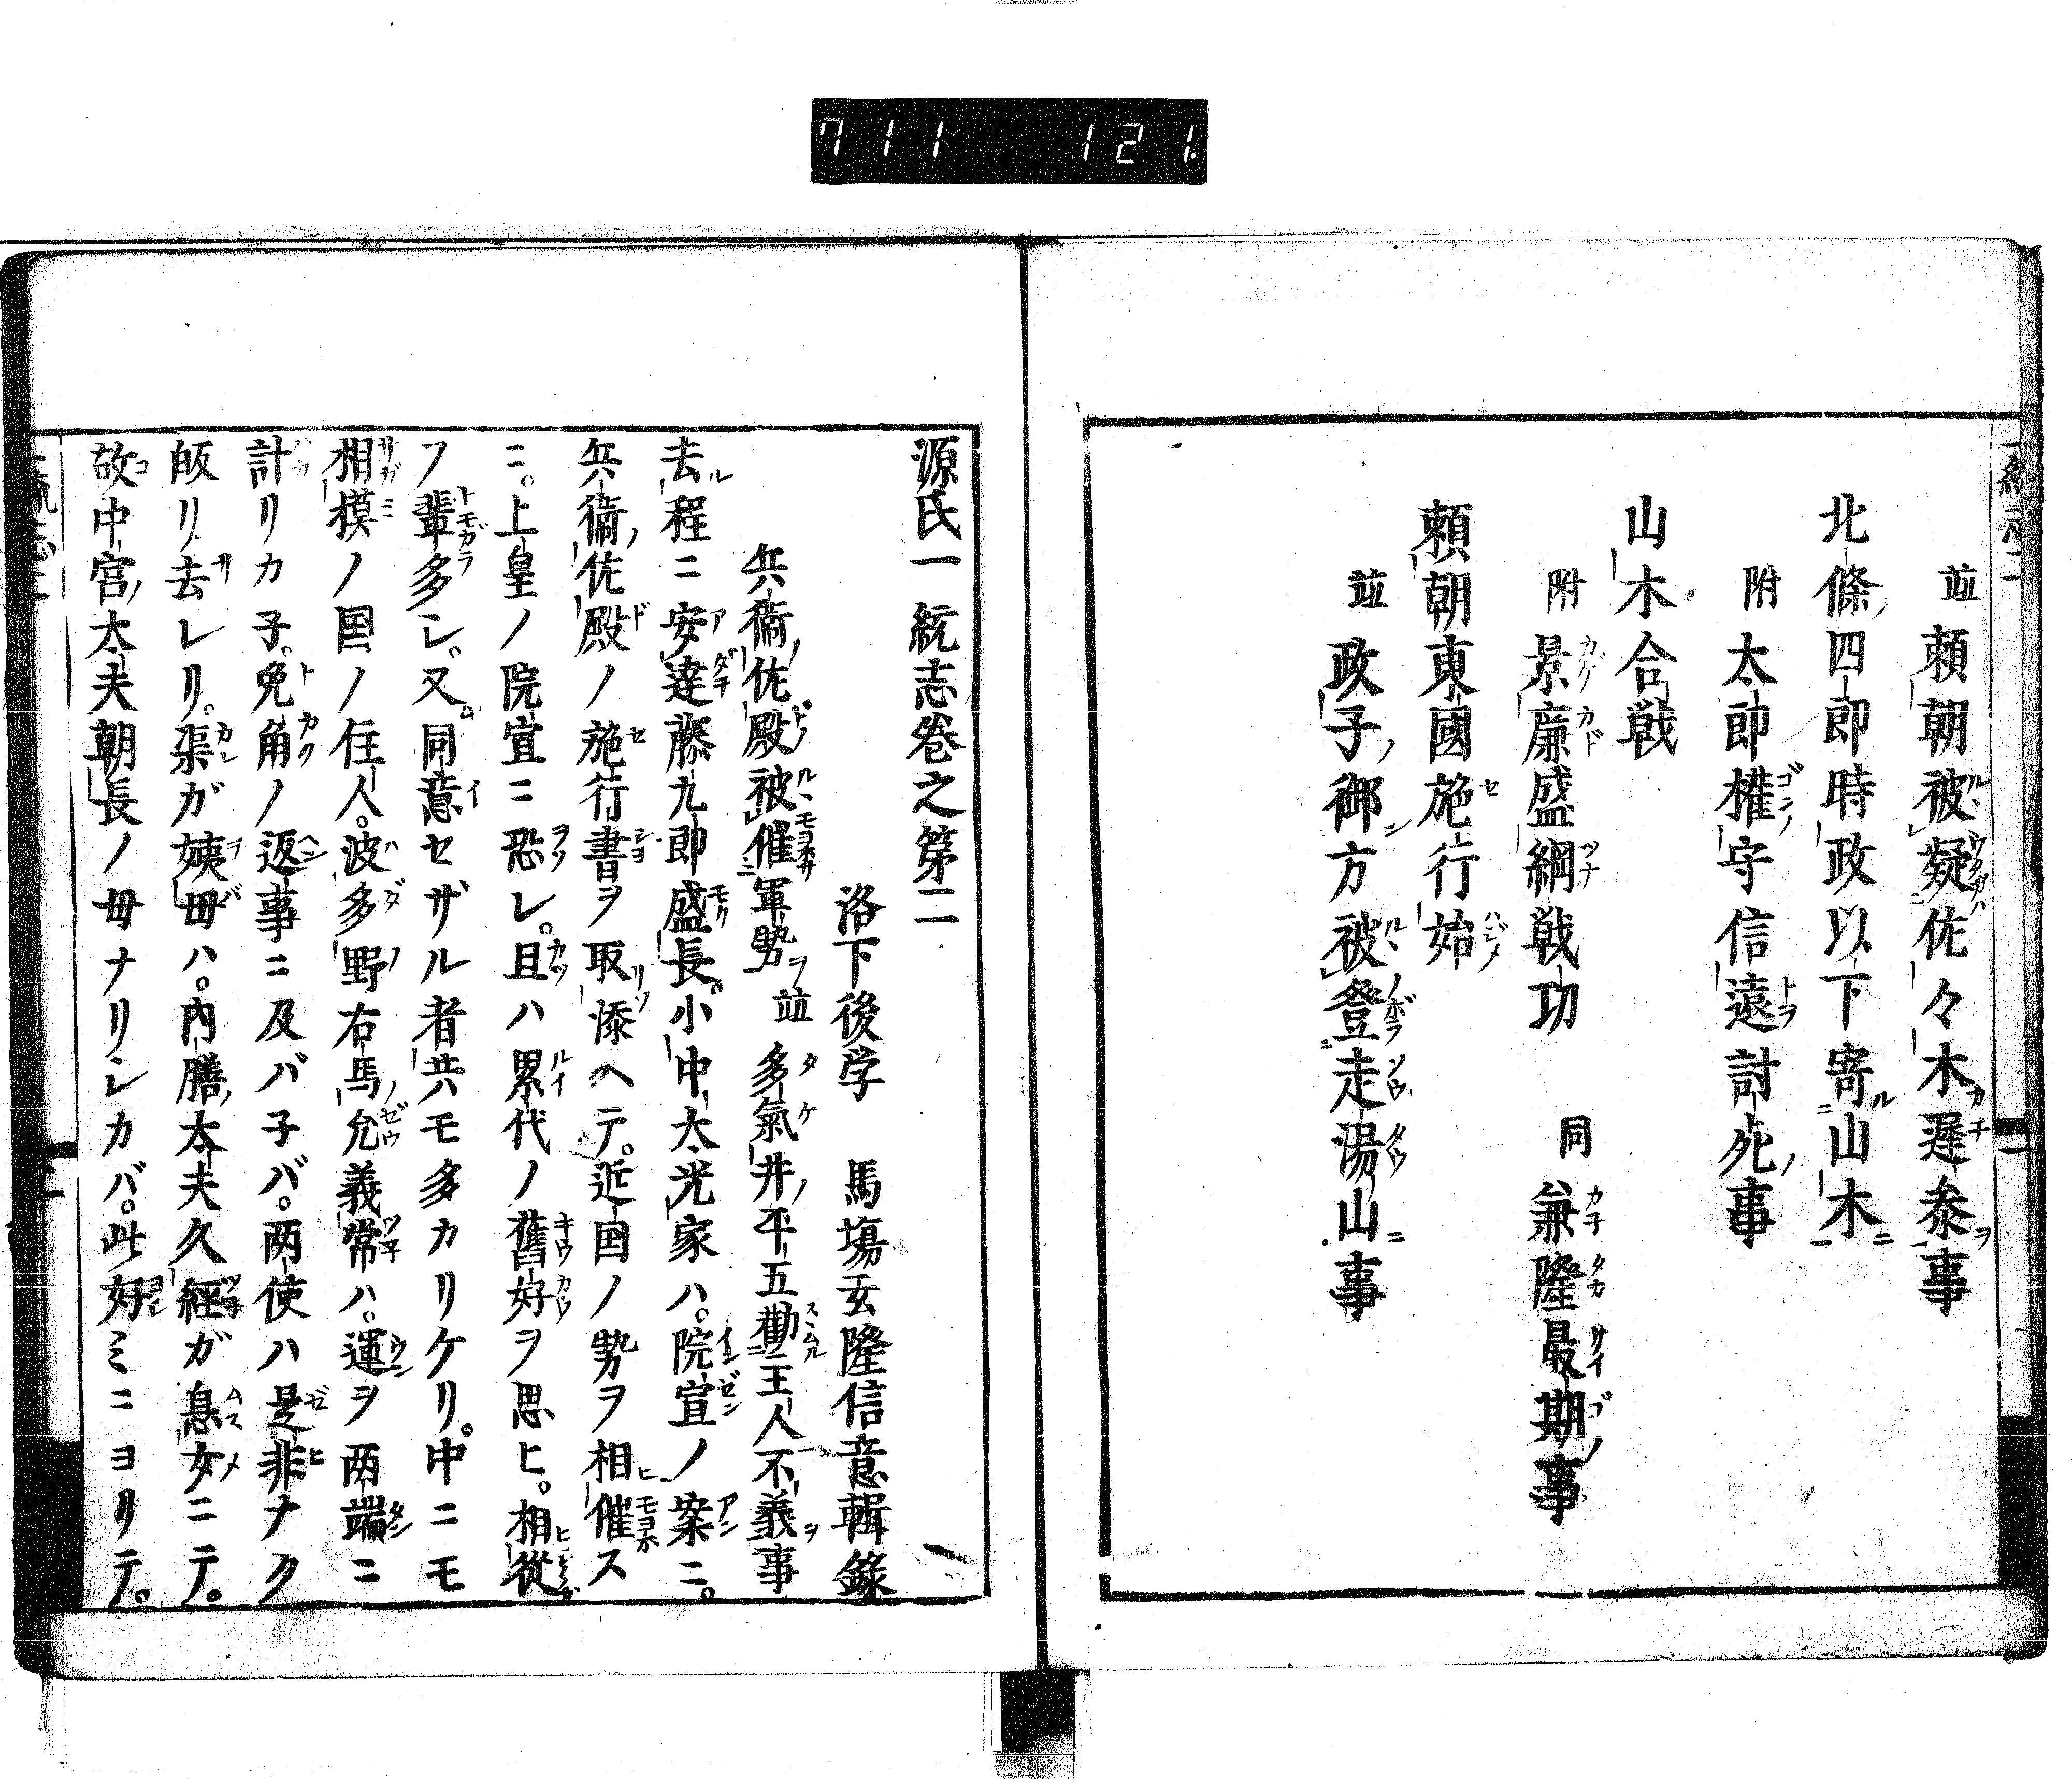 711 121.
並頼朝被疑佐々木遅参事
北條四郎時政以下寄山木
附太郎權守信遠討死事
山木合戦
附景廉盛綱戦功 同兼隆最期事
頼朝東國施行始
並政子御方被登走湯山事
源氏一統志巻之第二
洛下後学 馬塲玄隆信意輯錄
兵衞佐殿被催軍勢並多氣井平五勸王人不義事
去程ニ安達藤九郎盛長。小中太光家ハ。院宣ノ案ニ。
兵衞佐殿ノ施行書ヲ取添ヘテ。近国ノ勢ヲ相催ス
ニ。上皇ノ院宣ニ恐レ。且ハ累代ノ舊好ヲ思ヒ。相從
フ輩多シ。又同意セザル者共モ多カリケリ。中ニモ
相模ノ国ノ住人。波多野右馬允義常ハ。運ヲ両端ニ
計リカ子。兔角ノ返事ニ及バ子バ。両使ハ是非ナク
皈リ去レリ。渠ガ姨母ハ。内膳太夫久經ガ息女ニテ。
故中宮太夫朝長ノ母ナリシカバ。此好ミニヨリテ。